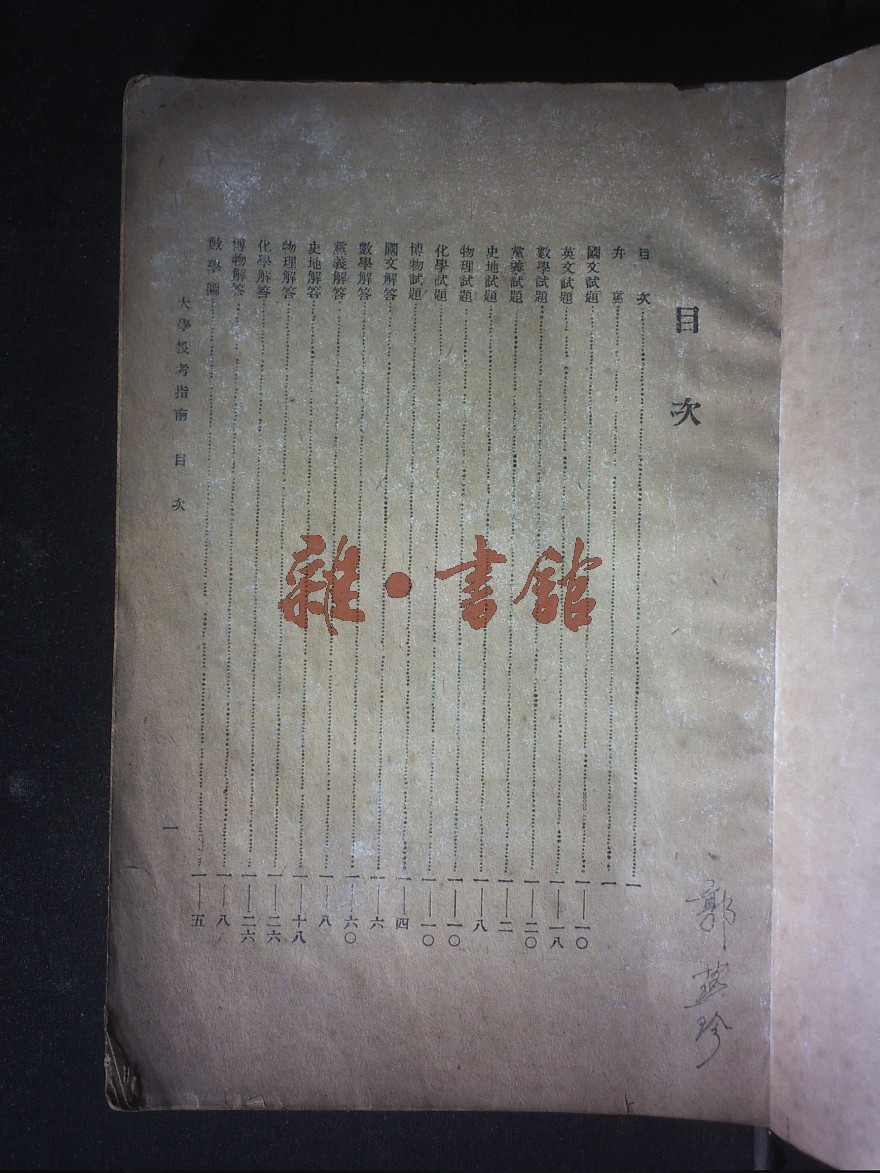 目次
目次……一
弁言……一
國文試題……一—一〇
英文試題……一—一八
數學試題……一—二〇
黨義試題……一—二
史地試題……一—八
物理試題……一—一〇
化學試題……一—一〇
博物試題……一—四
國文解答……一—六
數學解答……一—六〇
黨義解答……一—八
史地解答……一—十八
物理解答……一—二六
化學解答……一—二六
博物解答……一—八
數學圖……一—五
大學投考指南 目次
一
郭 珍
雜·書館